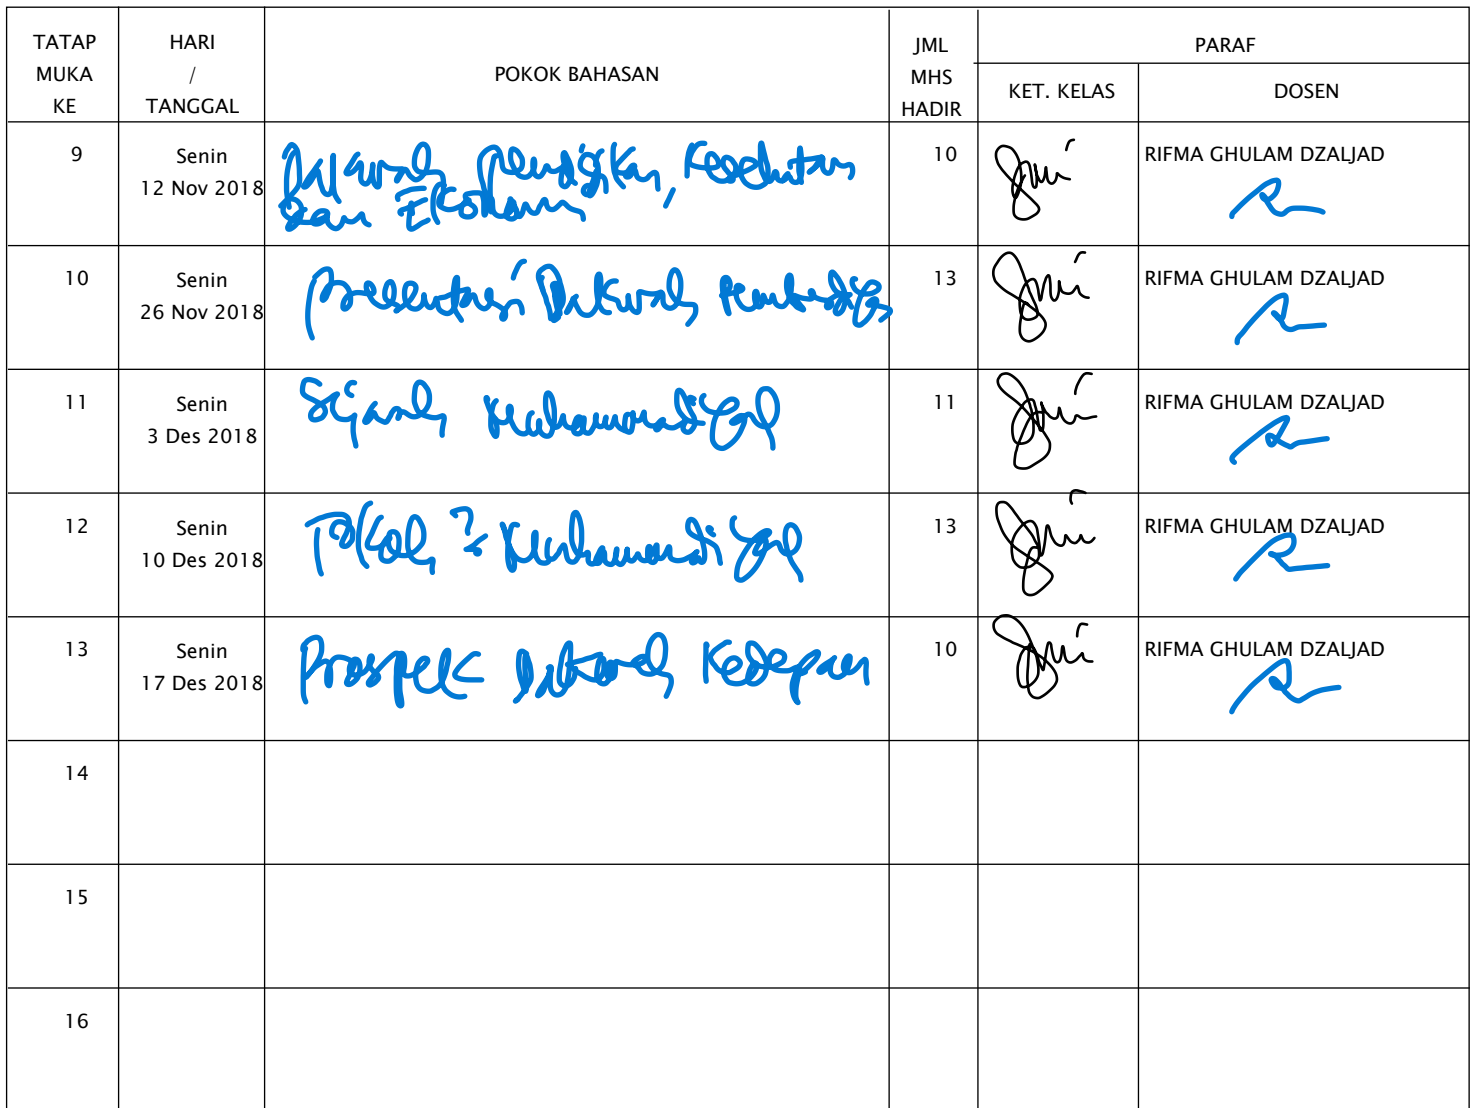 TATAP MUKA KE
HARI / TANGGAL
POKOK BAHASAN
JML MHS HADIR
PARAF
KET. KELAS
DOSEN
9
Senin
12 Nov 2018
Dakwah Pendidikan, Kesehatan
dan Ekonomi
10
RIFMA GHULAM DZALJAD
10
Senin
26 Nov 2018
Presentasi Dakwah
13
RIFMA GHULAM DZALJAD
11
Senin
3 Des 2018
Sejarah Muhammadiyah
11
RIFMA GHULAM DZALJAD
12
Senin
10 Des 2018
Tokoh Muhammadiyah
13
RIFMA GHULAM DZALJAD
13
Senin
17 Des 2018
Prospek Dakwah Kedepan
10
RIFMA GHULAM DZALJAD
14
15
16